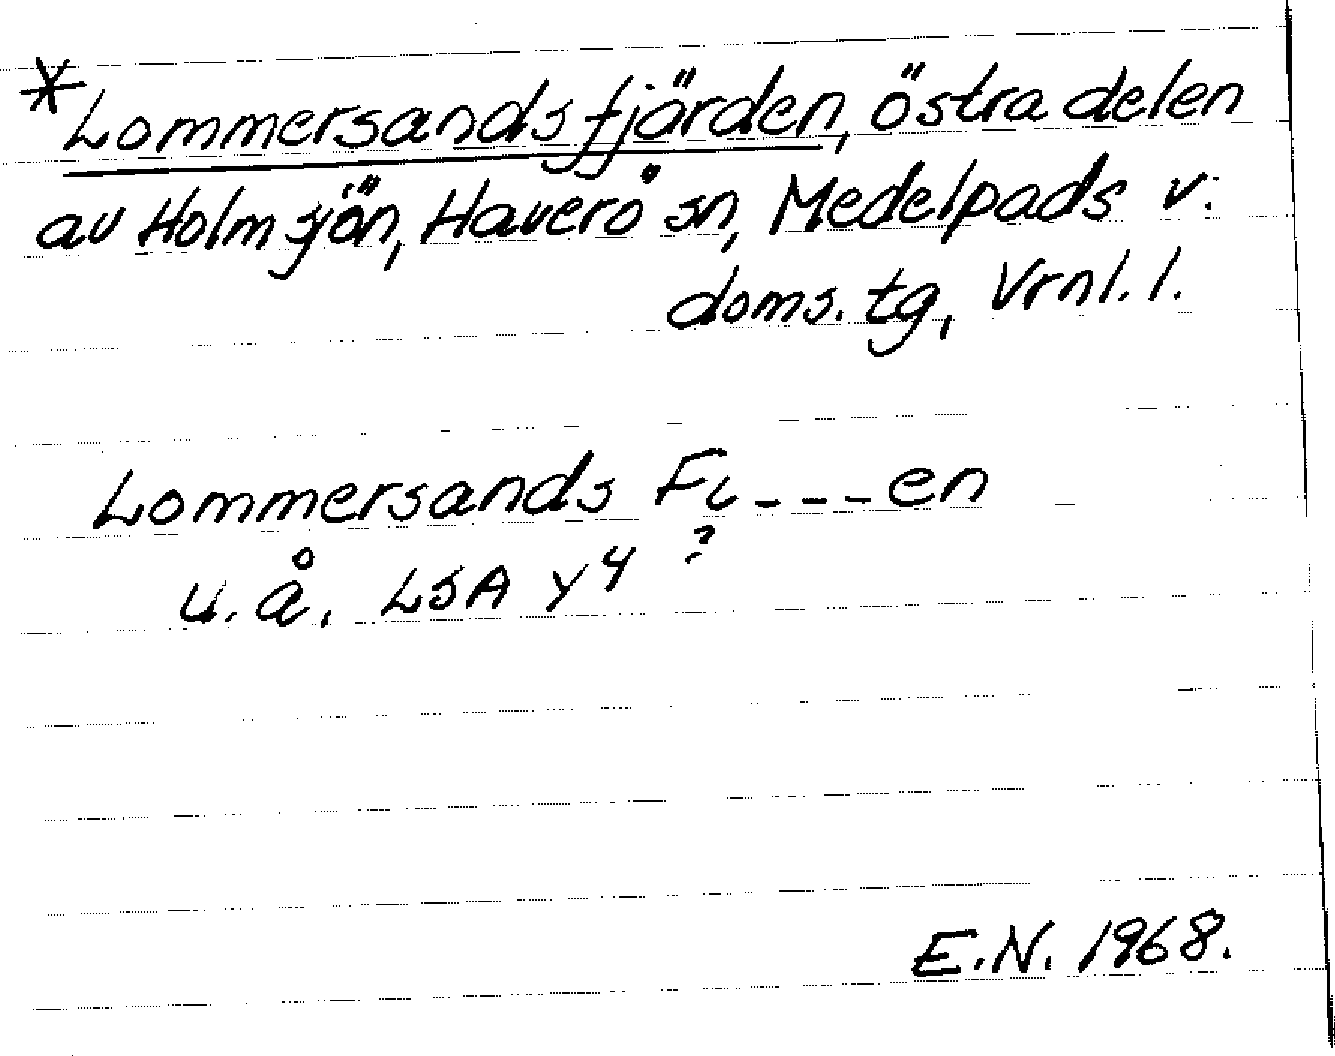 *Lommersandsfjärden, östra delen
av Holmsjön, Haverö sn, Medelpads v.
doms. tg, Vrnl. l.
Lommersands Fi---en
?
u.å. LSA Y4
E.N. 1968.